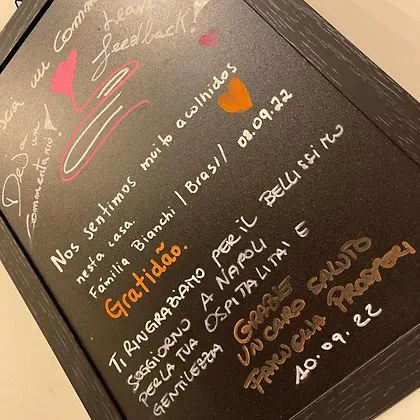 un comm
Leave
feedback!
Deja un
commentario!
Nos sentimos muito acolhidos
nesta casa.
Familia Bianchi / Brasil 08.09.22
Gratidão.
TI RINGRAZIAMO PER IL BELLISSIMO
SOGGIORNO A NAPOLI
PER LA TUA OSPITALITAI E
GENTILEZZA
GRAZIE
UN CARO SALUTO
FAMIGLIA PROSPERI
10.09.22